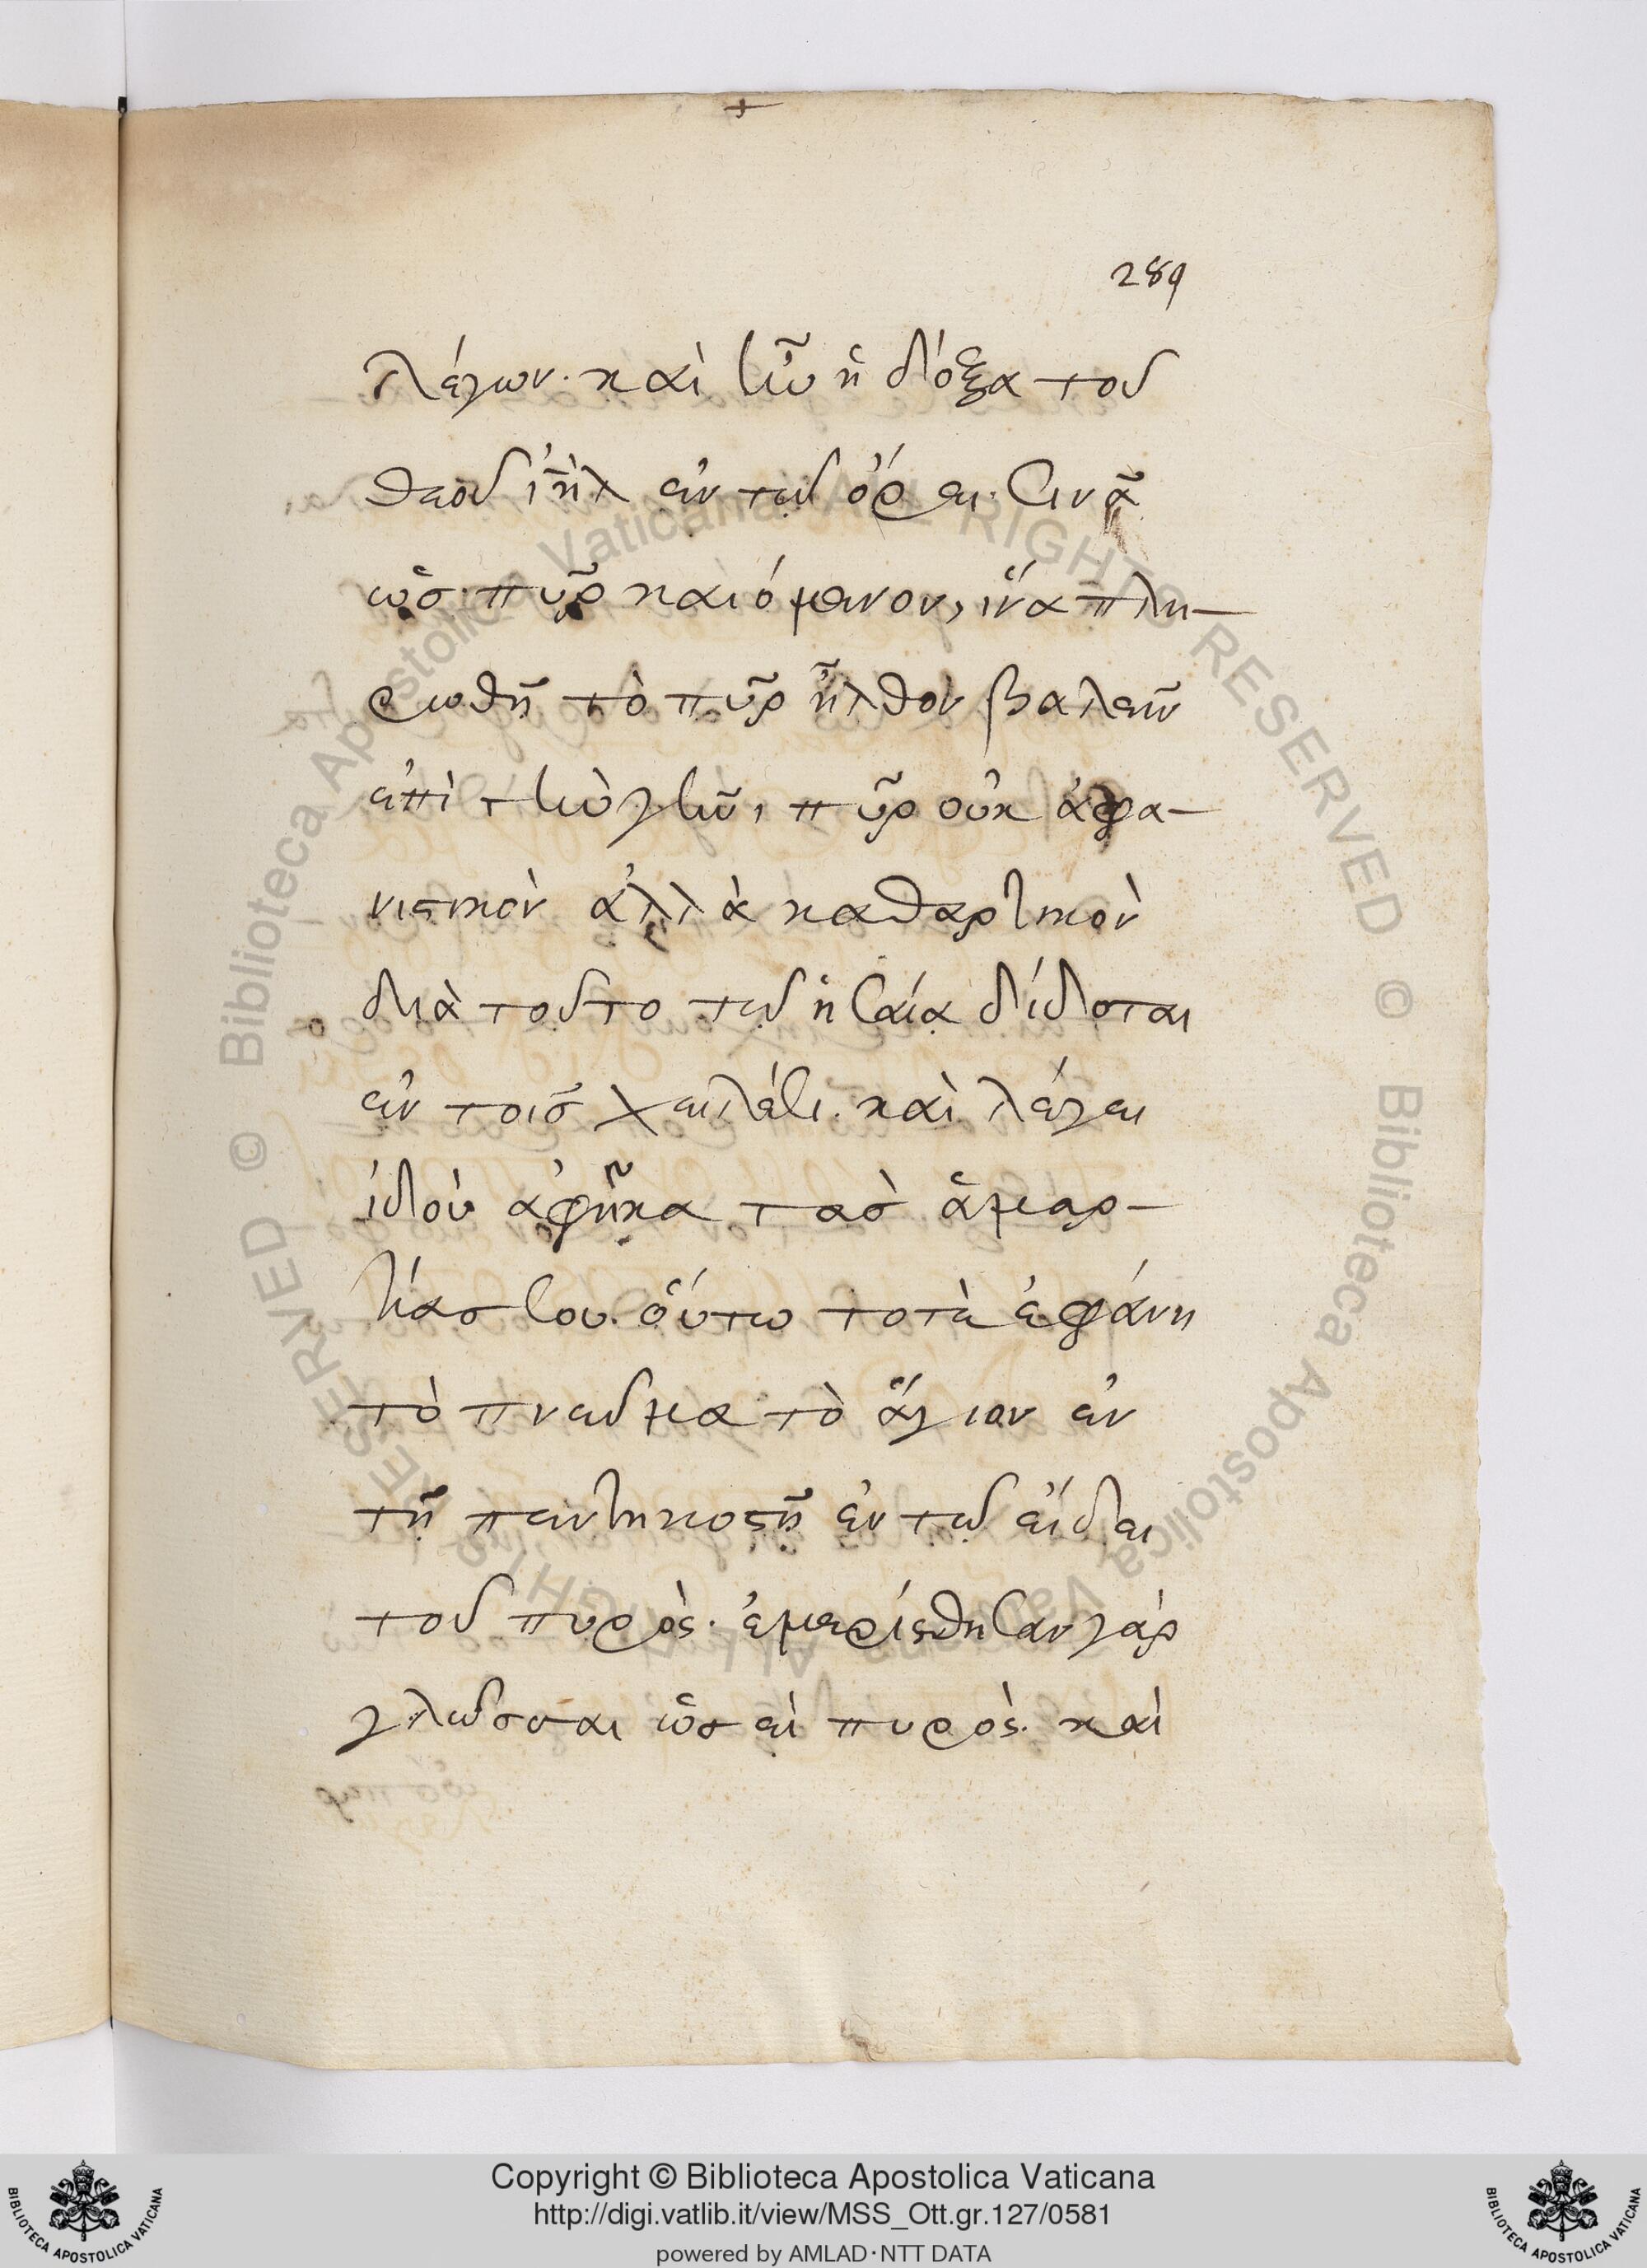 +
289
λέγων· καὶ ἦν ἡ δόξα τοῦ
θεοῦ ιηλ ἐν τῷ ὄρει Σινᾶ
ὡς πῦρ καιόμενον, ἵνα πλη-
ρωθῆ τὸ πῦρ ἦλθον βαλεῖν
ἐπὶ τὴν γῆν, πῦρ οὐκ ἀφα-
νιστικὸν ἀλλὰ καθαρτικὸν
διὰ τοῦτο τῷ ἡσαΐα δίδοται
ἐν τοῖς χείλεσι· καὶ λέγει
ἰδοὺ ἀφῆκα τὰς ἁμαρ-
τίας σου. οὕτω τοτὲ ἐφάνη
τὸ πνεῦμα τὸ ἅγιον ἐν
τῇ πεντηκοστῇ ἐν τῷ εἴδει
τοῦ πυρὸς· ἐμερίσθησαν γὰρ
γλῶσσαι ὡσεὶ πυρὸς· καὶ
Copyright © Biblioteca Apostolica Vaticana
http://digi.vatlib.it/view/MSS_Ott.gr.127/0581
powered by AMLAD·NTT DATA
BIBLIOTECA APOSTOLICA VATICANA
BIBLIOTECA APOSTOLICA VATICANA
© Biblioteca Apostolica Vaticana ALL RIGHTS RESERVED © Biblioteca Apostolica Vaticana ALL RIGHTS RESERVED